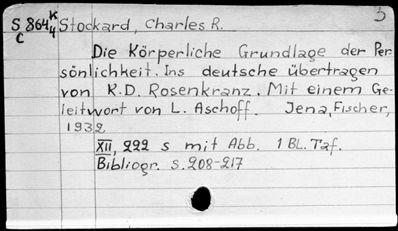 5
S 864 K4 Stockard, Charles R.
C
Die Körperliche Grundlage der Per
sönlichkeit. Ins deutsche übertragen
von K.D. Rosenkranz. Mit einem Ge-
leitwort von L. Aschoff. Jena, Fischer,
1932
XII, 222 s mit Abb. 1 BL. Taf.
Bibliogr. s. 208-217